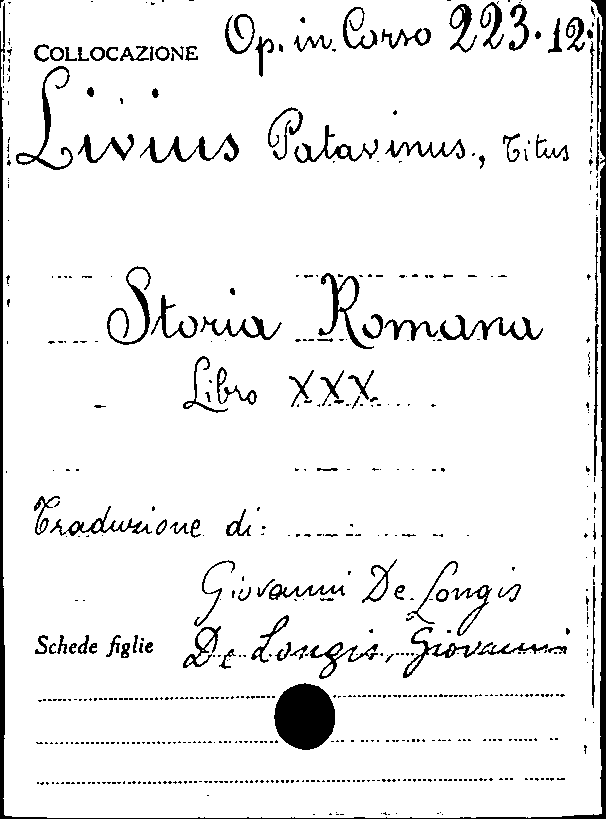 COLLOCAZIONE Op. in Corso 223.12.
Livius Patavinus., Titus
Storia Romana
Libro XXX
Traduzione di:
Giovanni De Longis
Schede figlie De Longis, Giovanni